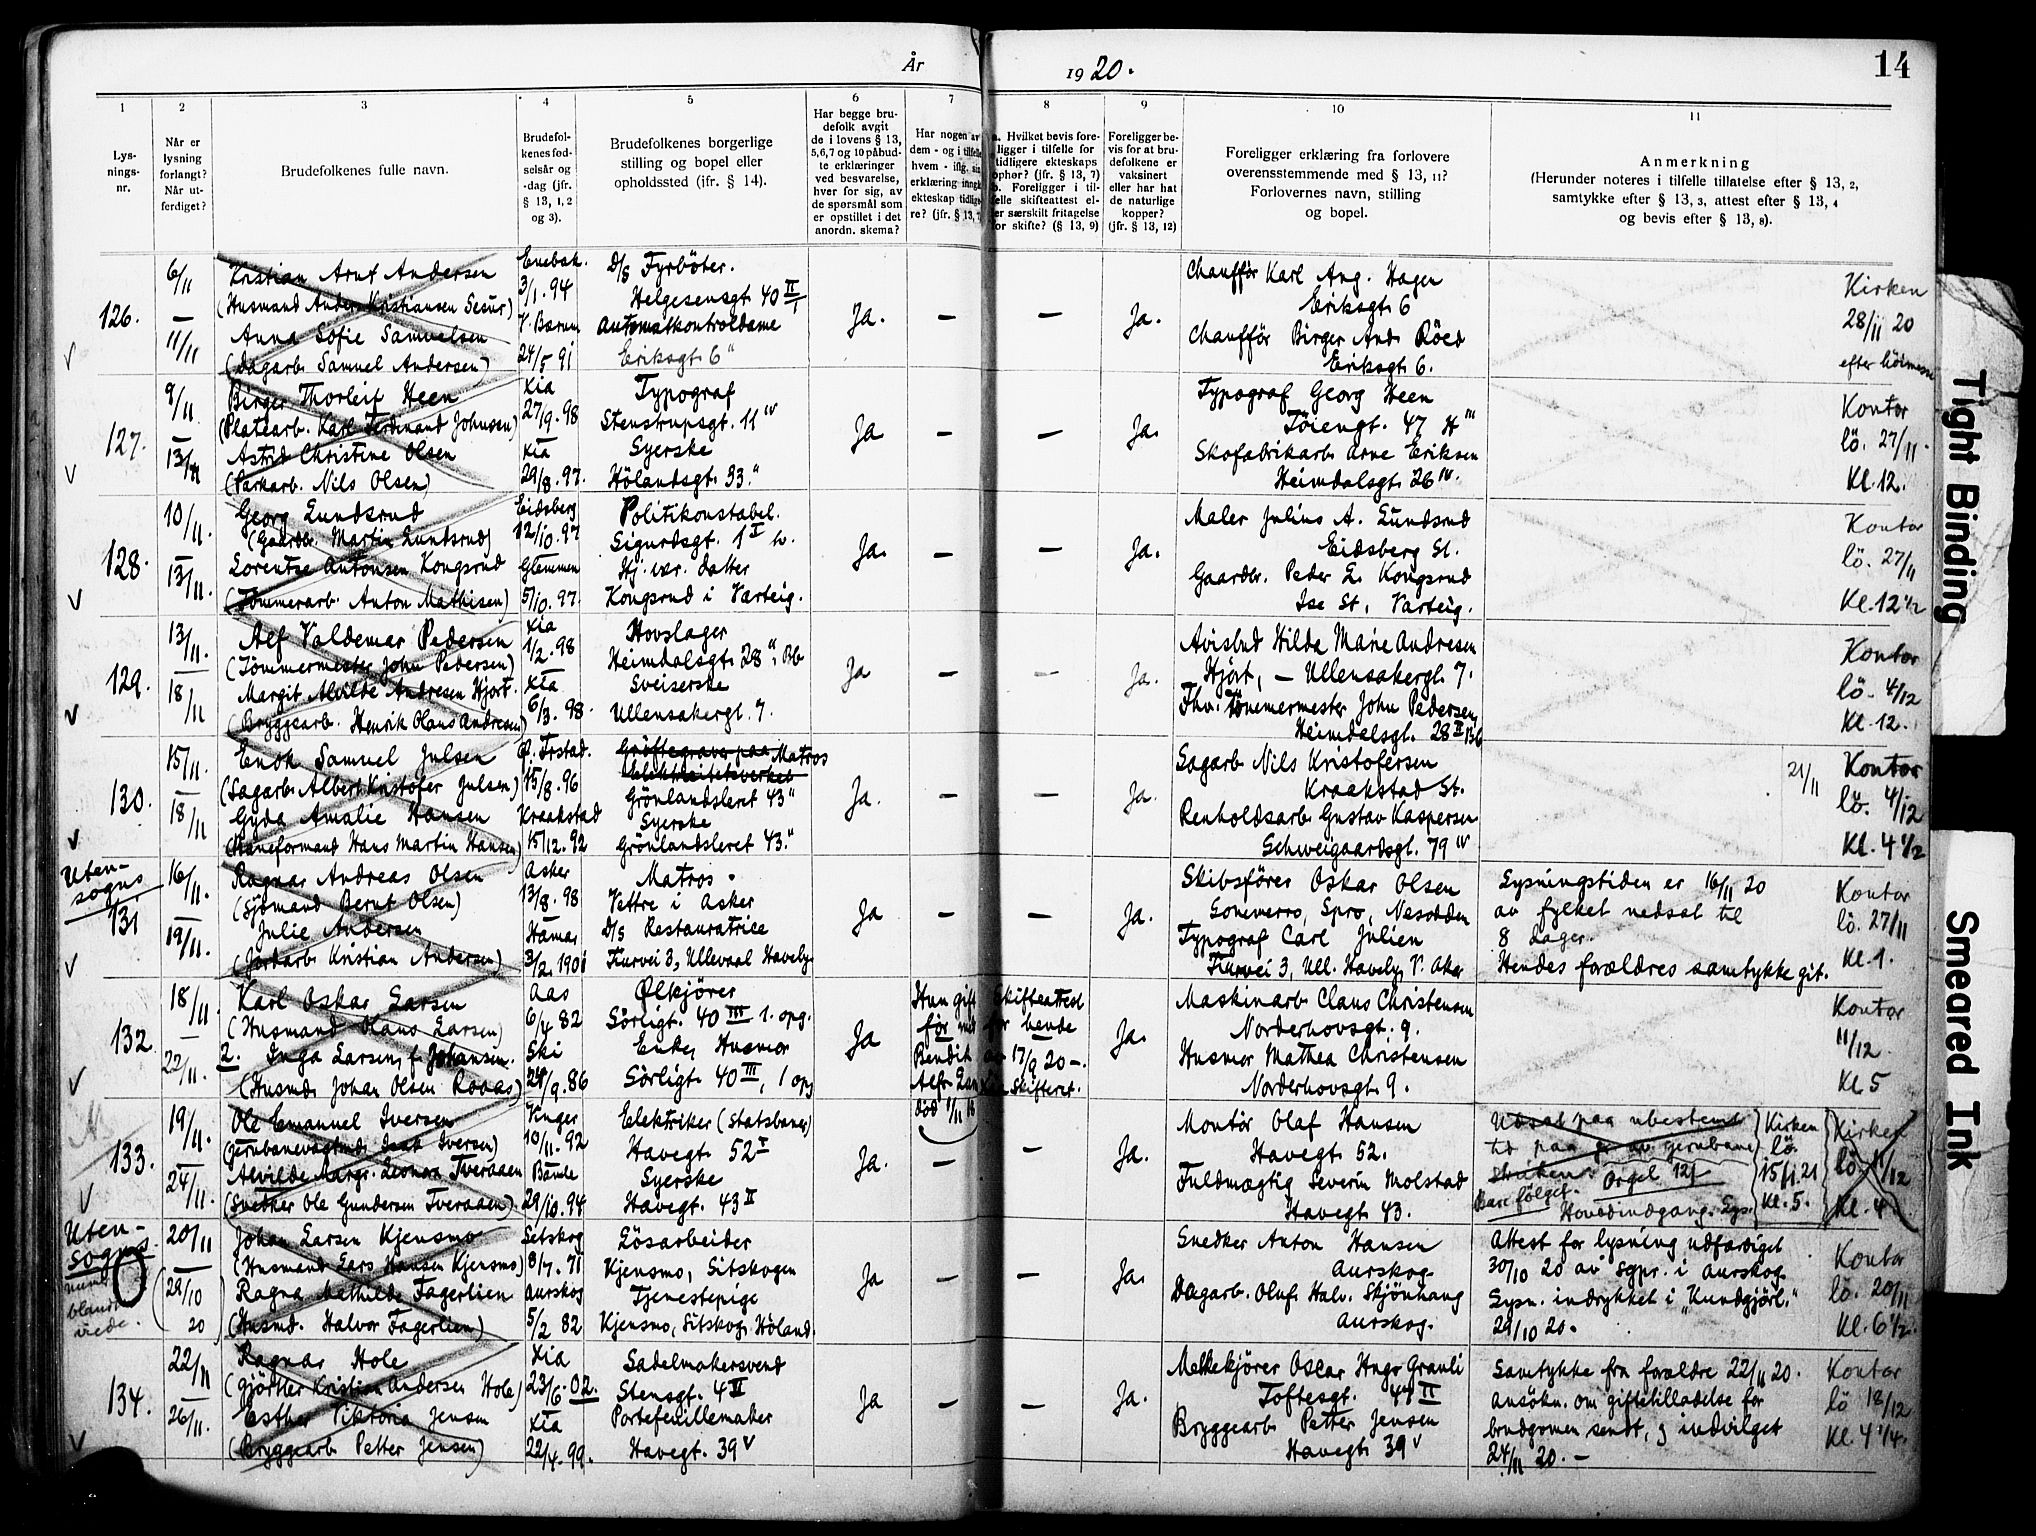 År
19 20.
14
1
2
3
4
5
6
7
8
9
10
11
Lys-
nings-
nr.
Når er
lysning
forlangt?
Når ut-
ferdiget?
Brudefolkenes fulle navn.
Brudefol-
kenes fød-
selsår og
-dag (jfr.
§ 13, 1, 2
og 3).
Brudefolkenes borgerlige
stilling og bopel eller
opholdssted (ifr. § 14).
Har begge bru-
defolk avgit
de i lovens § 13,
5,6,7 og 10 påbud-
te erklæringer
ved besvarelse,
hver for sig, av
de spørsmål som
er opstillet i det
anordn. skema?
Har nogen av
dem - og i tilfelle
hvem - iflg. sin
erklæring inngå
ekteskap tidlige-
re? (jfr. § 13, 7
a. Hvilket bevis fore-
ligger i tilfelle for
tidligere ekteskaps
ophør? (jfr. § 13, 7)
b. Foreligger i til-
felle skifteattest el-
er særskilt fritagelse
for skifte? (§ 13, 9)
Foreligger be-
vis for at bru-
defolkene er
vaksinert
eller har hat
de naturlige
kopper?
(jfr. § 13, 12)
Foreligger erklæring fra forlovere
overensstemmende med § 13, 11?
Forlovernes navn, stilling
og bopel.
Anmerkning
(Herunder noteres i tilfelle tillatelse efter § 13, 2,
samtykke efter § 13, 3, attest efter § 13, 4
og bevis efter § 13, 8).
126.
6/11
—
11/11
Kristian Arnt Andersen
(Husmand Anders Kristiansen
Anna Sofie Samuelsen
(Dagarb. Samuel Andersen)
Enebak.
3/1. 94
V. Bærum
24/5 91
D/s Fyrböter.
Helgesensgt. 40 II/1
Automatkontroldame
Eriksgt. 6"
Ja.
—
—
Ja.
Chaufför Karl Aug. Hagen
Eriksgt. 6
Chaufför Birger And. Röed
Eriksgt. 6.
Kirken
28/11 20
efter höimesse
127.
9/11
—
13/11
Birger Thorleif Heen
(Platearb. Karl Ferdinand Johnsen)
Astrid Christine Olsen
(Parkarb. Nils Olsen)
Xia
27/9. 98
Xia
29/8. 97.
Typograf
Stenstrupsgt. 11 IV
Syerske
Hölandsgt. 33."
Ja
—
—
Ja.
Typograf Georg Heen
Töiengt. 47 H III
Skofabrikarb. Arne Eriksen
Heimdalsgt. 26 IV.
Kontor
lö. 27/11.
Kl. 12.
128.
10/11
—
13/11.
Georg Lundsrud
(Gaardbr. Martin Lundsrud)
Lorentse Antonsen Kongsrud
(Tømmerarb. Anton Mathisen)
Eidsberg
12/10. 97
Glemmen
5/10. 97.
Politikonstabel.
Sigurdsgt. 1 I h.
Hj. vær. datter
Kongsrud i Varteig.
Ja.
—
—
Ja.
Maler Julius A. Lundsrud
Eidsberg St.
Gaardbr. Peder L. Kongsrud
Ise St, Varteig.
Kontor
lö. 27/11
Kl. 12 1/2
129.
13/11.
—
18/11
Alf Valdemar Pedersen
(Tömmermester John Pedersen)
Margit Alvilde Andresen Hjort.
(Bryggearb. Henrik Olaus Andresen)
Xia
1/2. 98
Xia
6/3. 98.
Hovslager
Heimdalsgt. 28", Bb
Sveiserske
Ullensakergt. 7.
Ja
—
—
Ja.
Avisbud Hilda Marie Andresen
Hjört, — Ullensakergt. 7.
Fhv. tömmermester John Pedersen,
Heimdalsgt. 28 II Bb
Kontor
lö. 4/12
Kl. 12.
130.
15/11.
—
18/11
Enok Samuel Julsen
(Sagarb. Albert Kristofer Julsen)
Gyda Amalie Hansen
(Baneformand Hans Martin Hansen)
Ø. Trstad.
15/8. 96
Kraakstad
15/12. 92
Gröftegraver paa Matros
Elektricitetsverket
Grönlandsleret 43"
Syerske
Grönlandsleret 43."
Ja.
—
—
Ja.
Sagarb. Nils Kristofersen
Kraakstad St.
Renholdsarb. Gustav Kaspersen
Schweigaardsgt. 79 IV
21/11
Kontor
lö. 4/12
Kl. 4 1/2
Uten-
sogns
131
16/11.
—
19/11.
Ragnar Andreas Olsen
(Sjömand Bernt Olsen)
Julie Andersen
(Jordarb. Kristian Andersen)
Asker
13/8. 98
Hamar
3/2. 1901
Matros.
Vettre i Asker
D/s Restauratrice
Furvei 3, Ullevaal Haveby
Ja
—
—
Ja.
Skibsförer Oskar Olsen
Spro, Nesodden
Typograf Carl Julien
Furvei 3, Ull. Haveby, V. Aker
Lysningstiden er 16/11 20
av fylket nedsat til
8 dager.
Hendes forældres samtykke git.
Kontor
lö. 27/11
Kl. 1.
132.
18/11.
—
22/11.
Karl Oskar Larsen
(Husmand Olaus Larsen)
2. Inga Larsen, f. Johansen.
(Husmd. Johan Olsen Rooas)
Aas
6/4 82
Ski
24/9. 86
Ølkjörer
Sörligt. 40 III 1. opg.
Enke, Husmor
Sörligt. 40 III, 1 opg
Ja
Hun gift
för med
Bendik
Alfr. Lar
död 1/11 18
Skifteattest
for hende
av 17/9 20 —.
Xia Skifteret.
Ja.
Maskinarb. Claus Christensen
Norderhovsgt. 9.
Husmor Mathea Christensen
Norderhovsgt. 9.
Kontor
11/12
Kl. 5
133.
19/11.
—
24/11.
Ole Emanuel Iversen
(Jernbanevogtmd. Isak Iversen)
Alvilde Margr. Leonora Tveraaen
(Snedker Ole Gundersen Tveraaen)
Vinger
10/11. 92
Bamle
29/10. 94
Elektriker (Statsbaner)
Havegt. 52 I
Syerske
Havegt. 43 II
Ja.
—
—
Ja.
Montör Olaf Hansen
Havegt. 52.
Fuldmægtig Severin Molstad
Havegt. 43.
Udsat paa ubestemt
tid paa gr. av jernbane
streiken. Orgel 12f
Bare følget. Hovedindgang. Lys.
Kirken
lö.
15/1. 21
Kl. 5.
Kirken
lö 11/12
Kl. 4
Uten-
sogns
0
blandt
viede.
20/11
—
(29/10
20)
Johan Larsen Kjensmo
(Husmand Lars Hansen Kjensmo)
Ragna Mathilde Fagerlien
(Husmd. Halvor Fagerlien)
Setskog
8/7. 71
Aurskog
5/2 82
Lösarbeider
Kjensmo, Sitskogen
Tjenestepige
Kjensmo, Sitskog, Höland.
Ja
—
—
Ja.
Snedker Anton Hansen
Aurskog
Dagarb. Oluf Halv. Skjönhaug
Aurskog.
Attest for lysning udfærdiget
30/10 20 av sgpr. i Aurskog
Lysn. indrykket i "Kundgjörl."
29/10 20.
Kontor
lö. 20/11
Kl. 6 1/2.
134.
22/11
—
26/11.
Ragnar Hole
(Gjörtler Kristian Andersen Hole)
Esther Viktoria Jensen
(Bryggearb. Petter Jensen)
Xia
23/6. 02.
Xia
22/4. 99.
Sadelmakersvend
Stensgt. 4 II
Portefeuillemaker
Havegt. 39 V
Ja
—
—
Ja.
Melkekjörer Oscar Hugo Grauli
Toftesgt. 44 II
Bryggearb. Petter Jensen
Havegt. 39 V
Samtykke fra forældre 22/11 20.
Ansökn. om giftetilladelse for
brudgomen sendt, g indvilget
24/11 20. —
Kontor
lö 18/12
Kl. 4 1/4.
Tight Binding
Smeared Ink